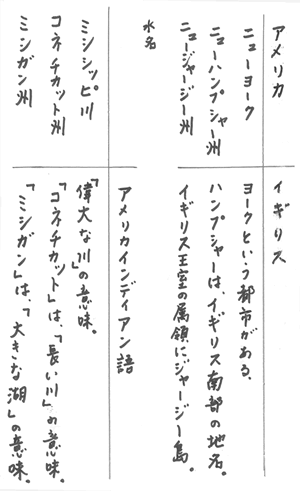 アメリカ
イギリス
ニューヨーク
ヨークという都市がある。
ニューハンプシャー州
ハンプシャーは、イギリス南部の地名。
ニュージャージー州
イギリス王室の属領にジャージー島。
水名
アメリカインディアン語
ミシシッピ川
「偉大な川」の意味。
コネチカット州
「コネチカット」は、「長い川」の意味。
ミシガン州
「ミシガン」は、「大きな湖」の意味。